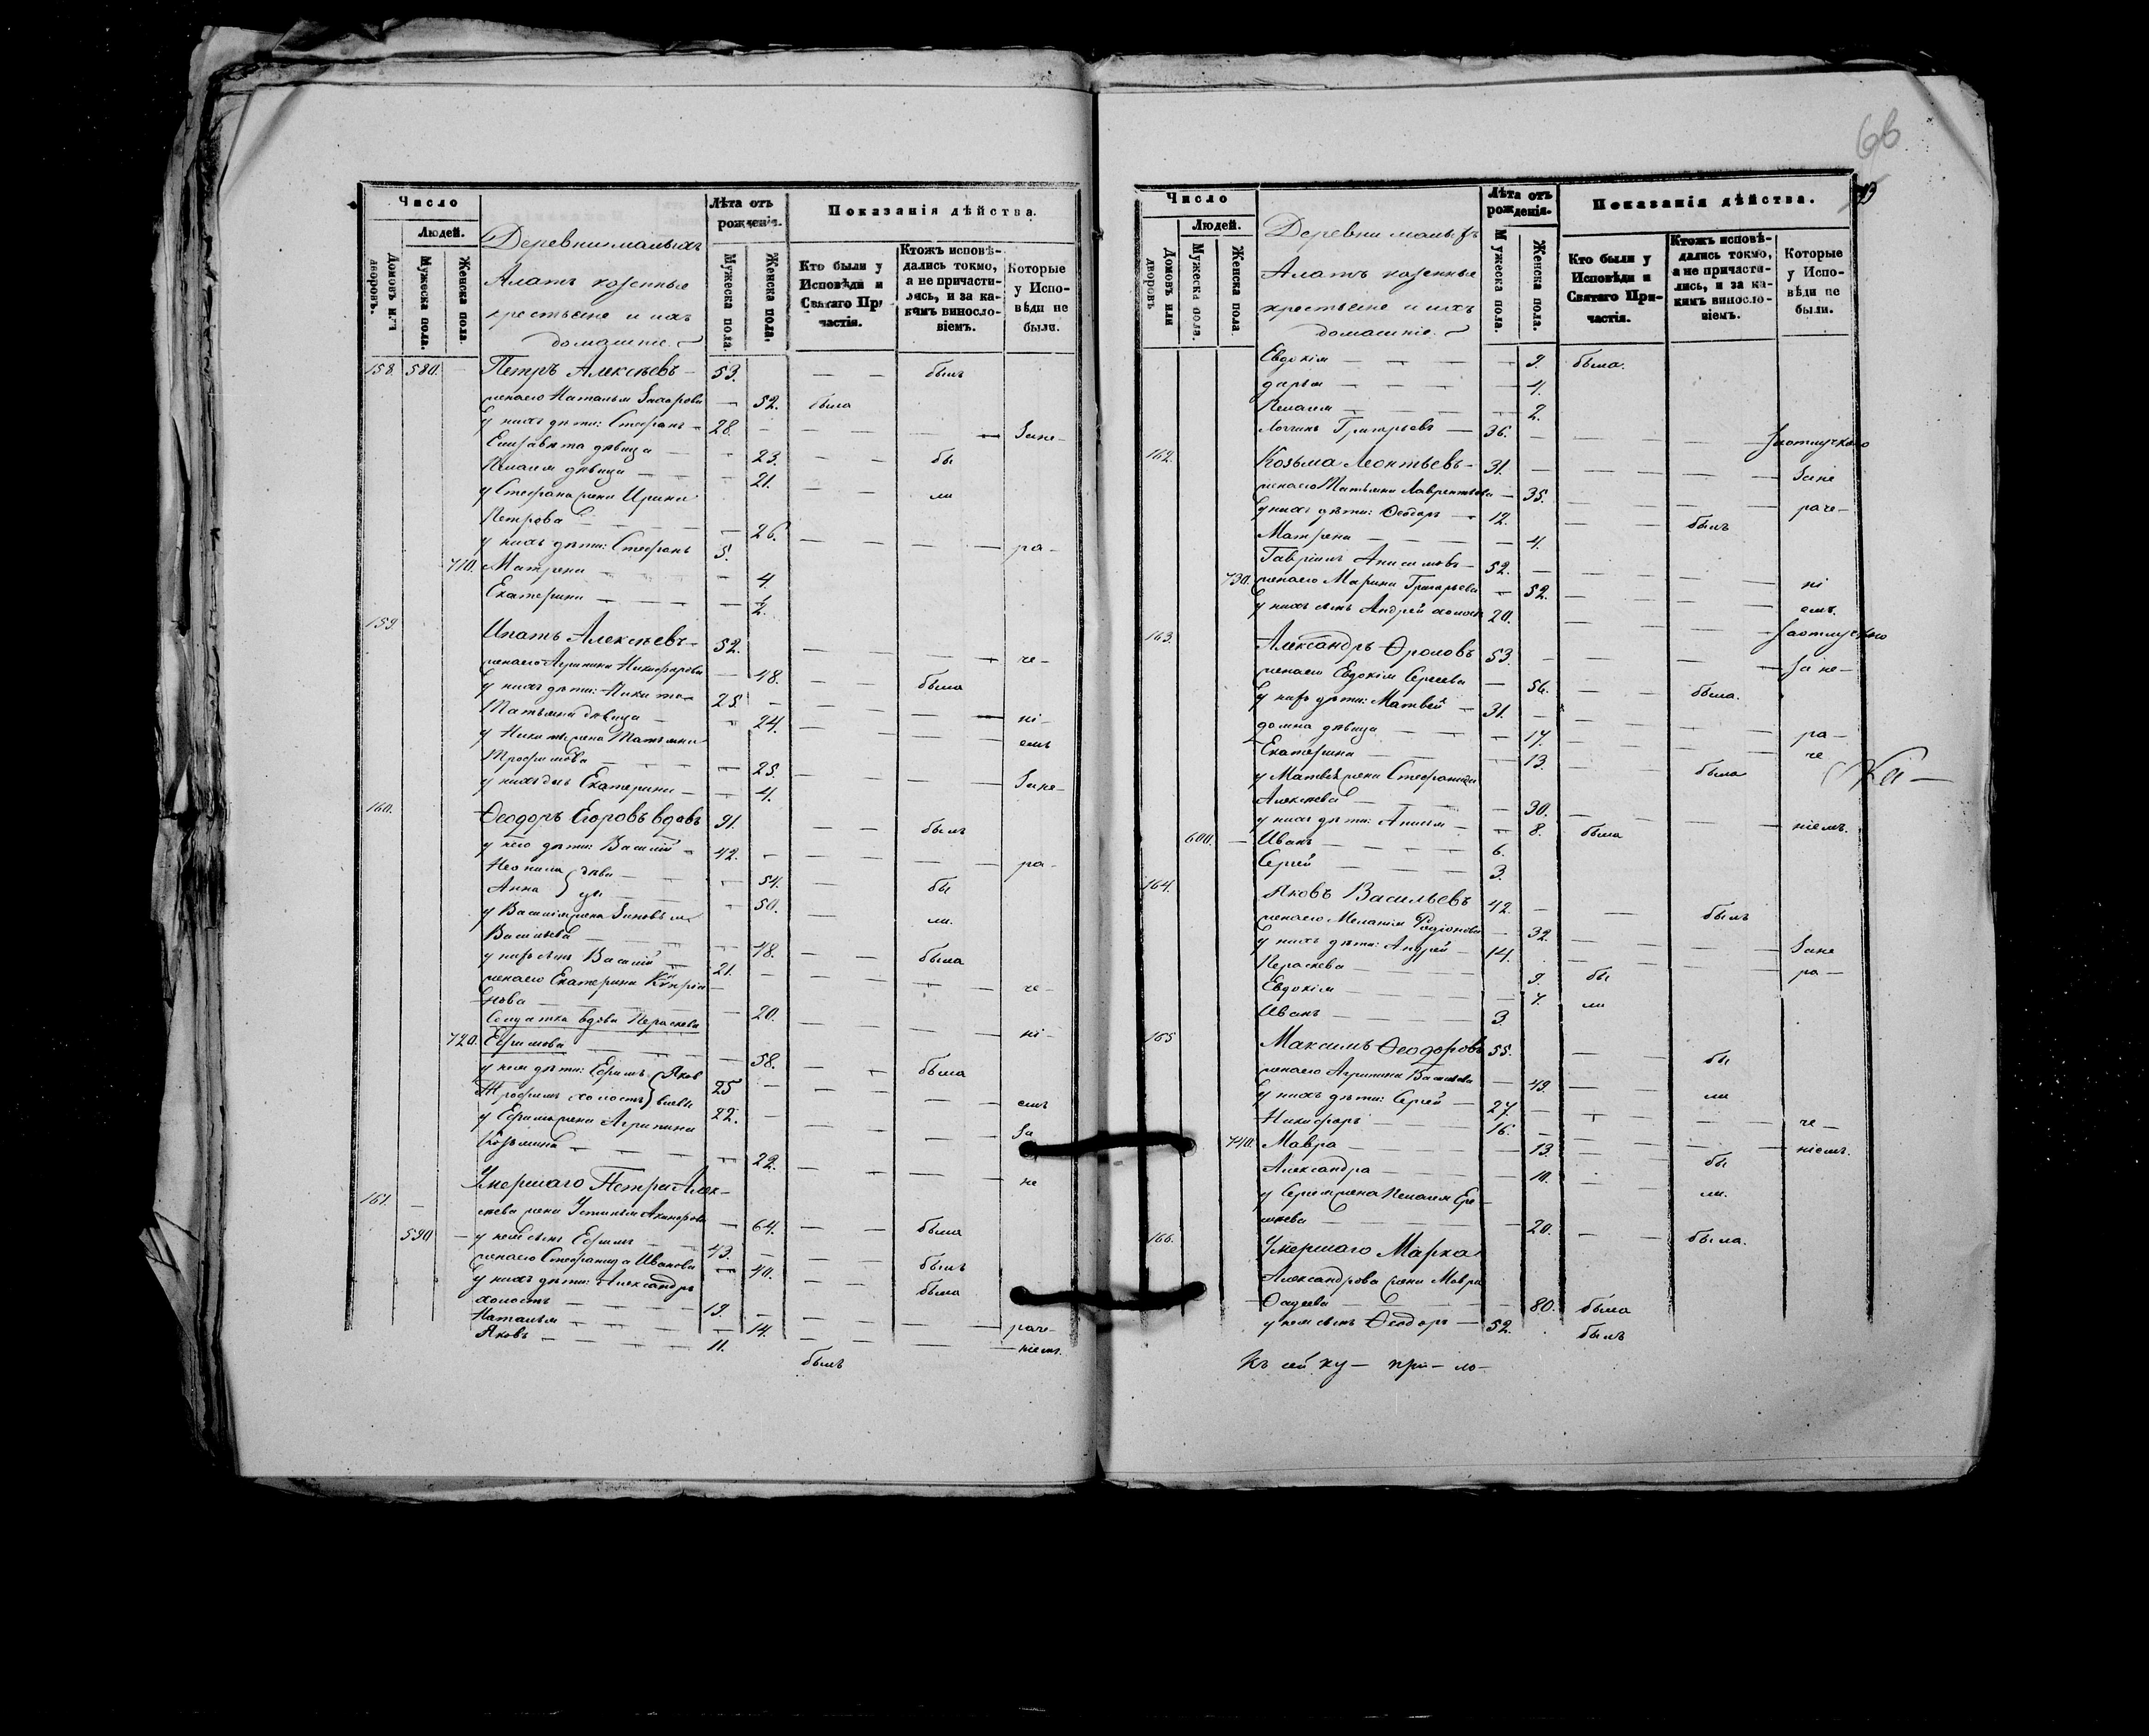 Число
Людей.
Домовъ или дворовъ.
Мужеска пола.
Женска пола.
Деревни малыхъ
Алатъ казенные
крестьяне и ихъ
домашніе.
Лѣта отъ рожденія.
Мужеска пола.
Женска пола.
Показанія дѣйства.
Кто были у Исповѣди и Святаго Причастія.
Ктожъ исповѣдались токмо, а не причастились, и за какимъ винословіемъ.
Которые у Исповѣди не были.
158. 580. Петръ Алексѣевъ 53. былъ
жена его Наталья Захарова 52. была
у нихъ дѣти: Стефанъ 28. За не-
Елисавета дѣвица 23. бы
Пелагея дѣвица 21.
у Стефана жена Ирина ли
Петрова 26.
у нихъ дѣти: Стефанъ 5. ра-
710. Матрена 4.
Екатерина 1/2.
159. Игнатъ Алексѣевъ 52. че-
жена его Агрипина Никифорова 48. была
у нихъ дѣти: Никита 25.
Татьяна дѣвица 24. ні-
у Никиты жена Татьяна емъ
Трофимова 25.
у нихъ дочь Екатерина 4. За не-
160. Ѳеодоръ Егоровъ вдовъ 91. былъ
у него дѣти: Василій 42. ра-
Неонила } дѣви 54. бы
Анна } цы 50.
у Василія жена Зиновья ли.
Васильева 48.
у нихъ сынъ Василій 21. была
жена его Екатерина Кипріа че-
нова 20.
Солдатка вдова Параскева ні-
720. Ефимова 58.
у нея дѣти: Ефимъ } Яков 25 была
Трофимъ холостъ } влевы 22. емъ
у Ефима жена Агрипина За
Козьмина 22.
161. Умершаго Петра Алек- не
сѣева жена Устинья 64. была
590 у нея сынъ Ефимъ 43.
жена его Стефанида Иванова 40. былъ
у нихъ дѣти: Александръ была
холостъ 19.
Наталья 14. раче-
Яковъ 11. былъ ніемъ.
66
Число
Людей.
Домовъ или дворовъ
Мужеска пола.
Женска пола.
Деревни малыхъ
Алатъ казенные
крестьяне и ихъ
домашніе.
Лѣта отъ рожденія.
Мужеска пола.
Женска пола.
Показанія дѣйства.
Кто были у Исповѣди и Святаго Причастія.
Ктожъ исповѣдались токмо, а не причастились, и за какимъ винословіемъ.
Которые у Исповѣди не были.
Евдокія 9. была.
Дарья 4.
Пелагея 2.
Логгинъ Григорьевъ 36. За отлучкою
162. Козьма Леонтьевъ 31. За не
жена его Татьяна Лаврентьева 35. раче-
у нихъ дѣти: Ѳеодоръ 12. былъ
Матрена 4.
Гавріилъ Анисимовъ 52.
730. жена его Марина Григорьева 52. ні
у нихъ сынъ Андрей холостъ 20. емъ.
За отлучкою
163. Александръ Фроловъ 53. За не-
жена его Евдокія Сергеева 56. была.
у нихъ дѣти: Матвей 31.
Домна дѣвица 17. ра-
Екатерина 13. че
у Матвея жена Стефанида была
Алексѣева 30.
у нихъ дѣти: Анисья 8. была ніемъ.
600. Иванъ 6.
Сергей 3.
164. Яковъ Васильевъ 42. былъ
жена его Меланія Родіонова 32.
у нихъ дѣти: Андрей 14. За не
Параскева 9. бы ра-
Евдокія 7. ли
Иванъ 3.
165 Максимъ Ѳеодоровъ 55. бы
жена его Агрипина Васильева 49.
у нихъ дѣти: Сергей 27. ли
Никифоръ 16. че-
740. Мавра 13. ніемъ.
Александра 10. бы
у Сергея жена Пелагея Ере- ли.
мѣева 20.
166. Умершаго Марка была.
Александрова жена Мавра
Фадеева 80. была
у нея сынъ Ѳеодоръ 52. былъ
Къ сей кни- при- ло-